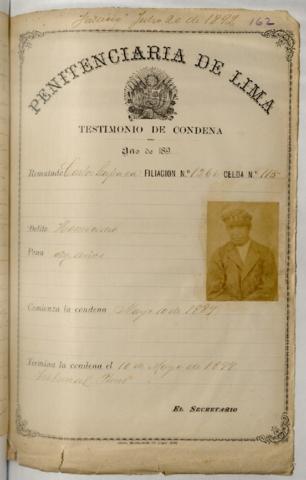 Julio 20 de 1892 162
PENITENCIARIA DE LIMA
TESTIMONIO DE CONDENA
Año de 189
Rematado Carlos FILIACION N.º 126 CELDA N.º 115
Delito Homicidio
Pena años
Comienza la condena Mayo 10 de 1887
Termina la condena el 10 de Mayo de 1899
Tribunal
EL SECRETARIO